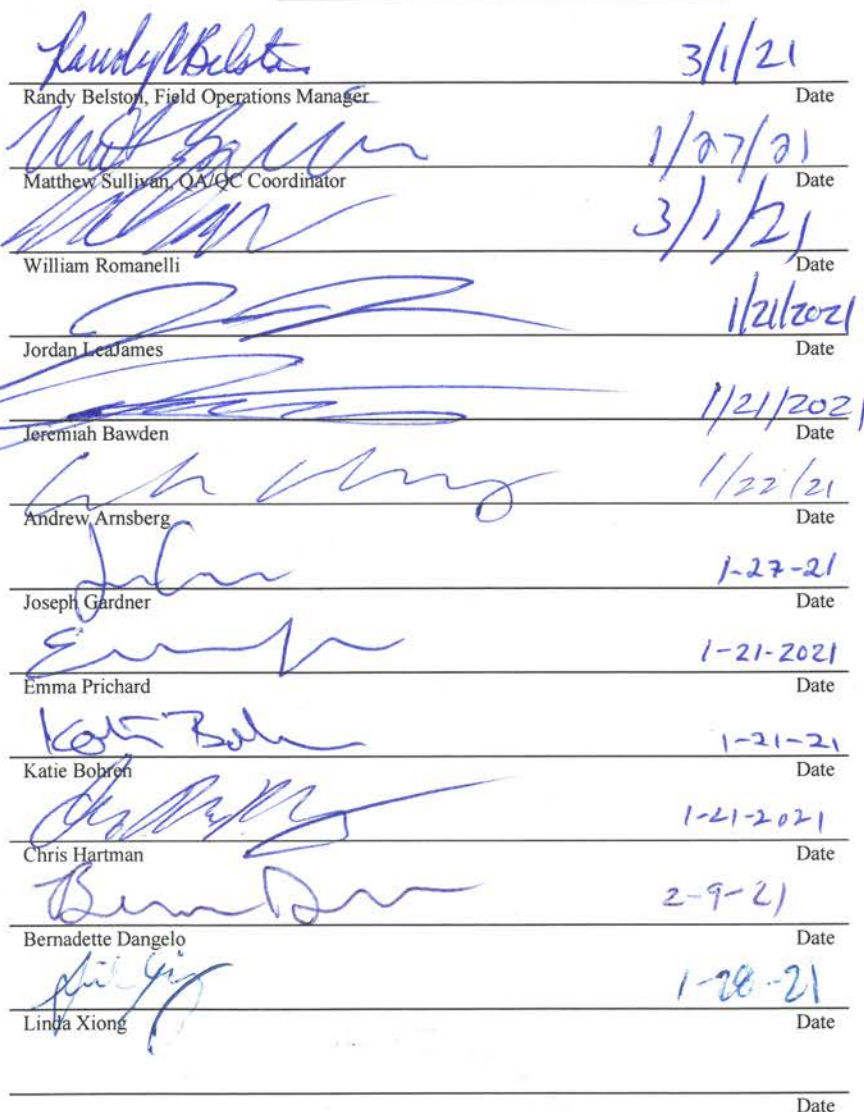 Randy Belston 3/1/21
Randy Belston, Field Operations Manager Date
1/27/21
Matthew Sullivan, QA/QC Coordinator Date
3/1/21
William Romanelli Date
1/21/2021
Jordan LeaJames Date
1/21/2021
Jeremiah Bawden Date
1/22/21
Andrew Arnsberg Date
1-27-21
Joseph Gardner Date
1-21-2021
Emma Prichard Date
1-21-21
Katie Bohren Date
1-21-2021
Chris Hartman Date
2-9-21
Bernadette Dangelo Date
1-28-21
Linda Xiong Date
Date